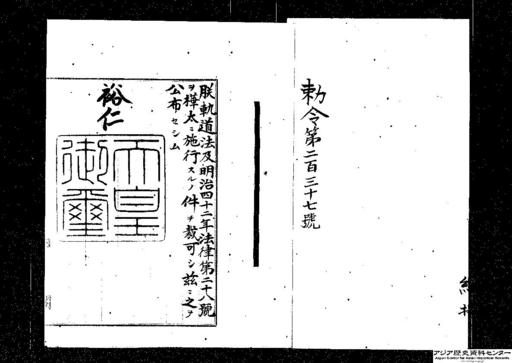 勅令第二百三十七號
朕軌道法及明治四十二年法律第二十八號
ヲ樺太ニ施行スルノ件ヲ裁可シ茲ニ之ヲ
公布セシム
裕仁
天皇
御璽
アジア歴史資料センター
Japan Center for Asian Historical Records